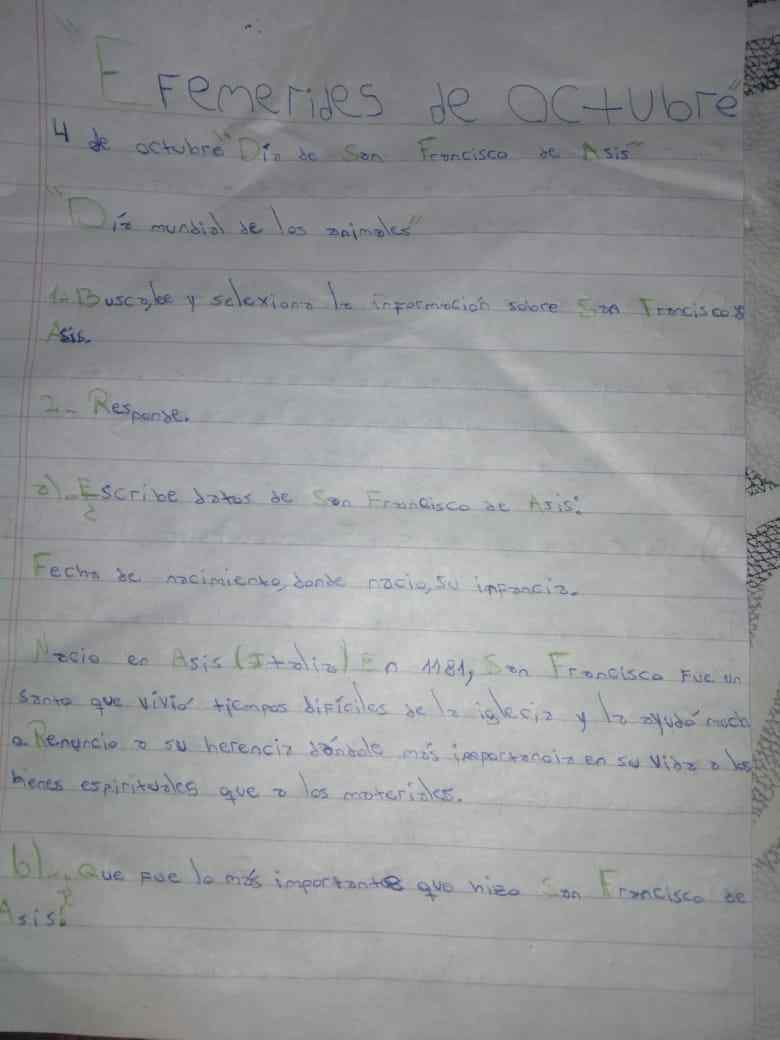 "Efemerides de octubre"
4 de octubre "Día de San Francisco de Asis"
"Día mundial de los animales"
1- Busca, lee y selexiona la información sobre San Francisco de
Asis.
2- Responde.
a)- Escribe datos de San Francisco de Asis:
Fecha de nacimiento, donde nacio, su infancia.
Nacio en Asis (Italia) En 1181, San Francisco fue un
santo que vivió tiempos difíciles de la iglesia y la ayudó much
a. Renuncio a su herencia dándole más importancia en su vida a los
bienes espirituales que a los materiales.
b)- Que fue lo más importante que hizo San Francisco de
Asis?